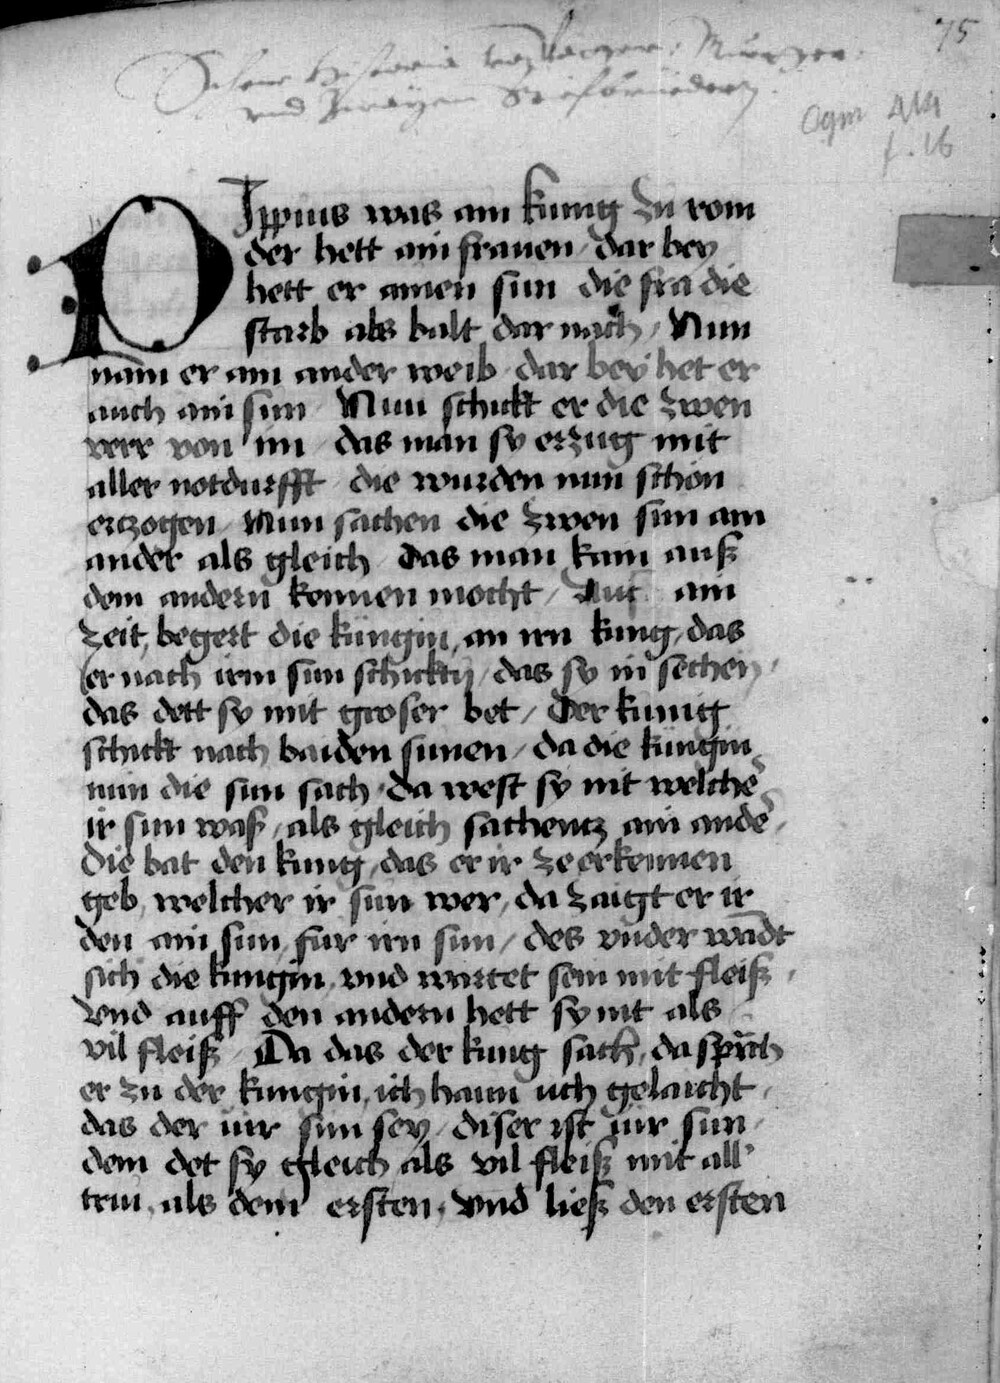 75
Schene Historia von
vnd zwayen Stiefbruedern
Cgm 414
f. 16
OJppius was ain kunig zu rom
der hett ain frauen / dar bey
hett er ainen sun die fra die
starb als balt dar nach / Nun
nam er ain ander weib dar bey het er
auch ain sun Nun schickt er die zwen
verr von im / das man sy erzug mit
aller notdurfft die wurden nun schon
erczogen / Nun sachen die zwen sun ain
ander als gleich das man kain auß
dem andern kennen mocht / Auf ain
zeit, begert die küngin, an irn kung, das
er nach irm sun schickty / das sy in sechen /
das dett sy mit groser bet / Der kunig
schickt nach baiden sunen / da die küngin
nun die sun sach / da west sy nit welche
ir sun waß / als gleich sachentz ain ande
die bat den kung, das er ir ze erkennen
geb, welcher ir sun wer, da zaigt er ir
den ain sun, fur irn sun / des vnder wādt
sich die kungin, vnd wartet sein mit fleiß /
vnd auff den andern hett sy nit als
vil fleiß / Da das der kung sach, da sprach
er zu der kungin, ich hann uch gelaicht /
das der uir sun sey / diser ist uir sun
dem det sy gleich als vil fleiß mit all
trui, als dem ersten, vnd ließ den ersten